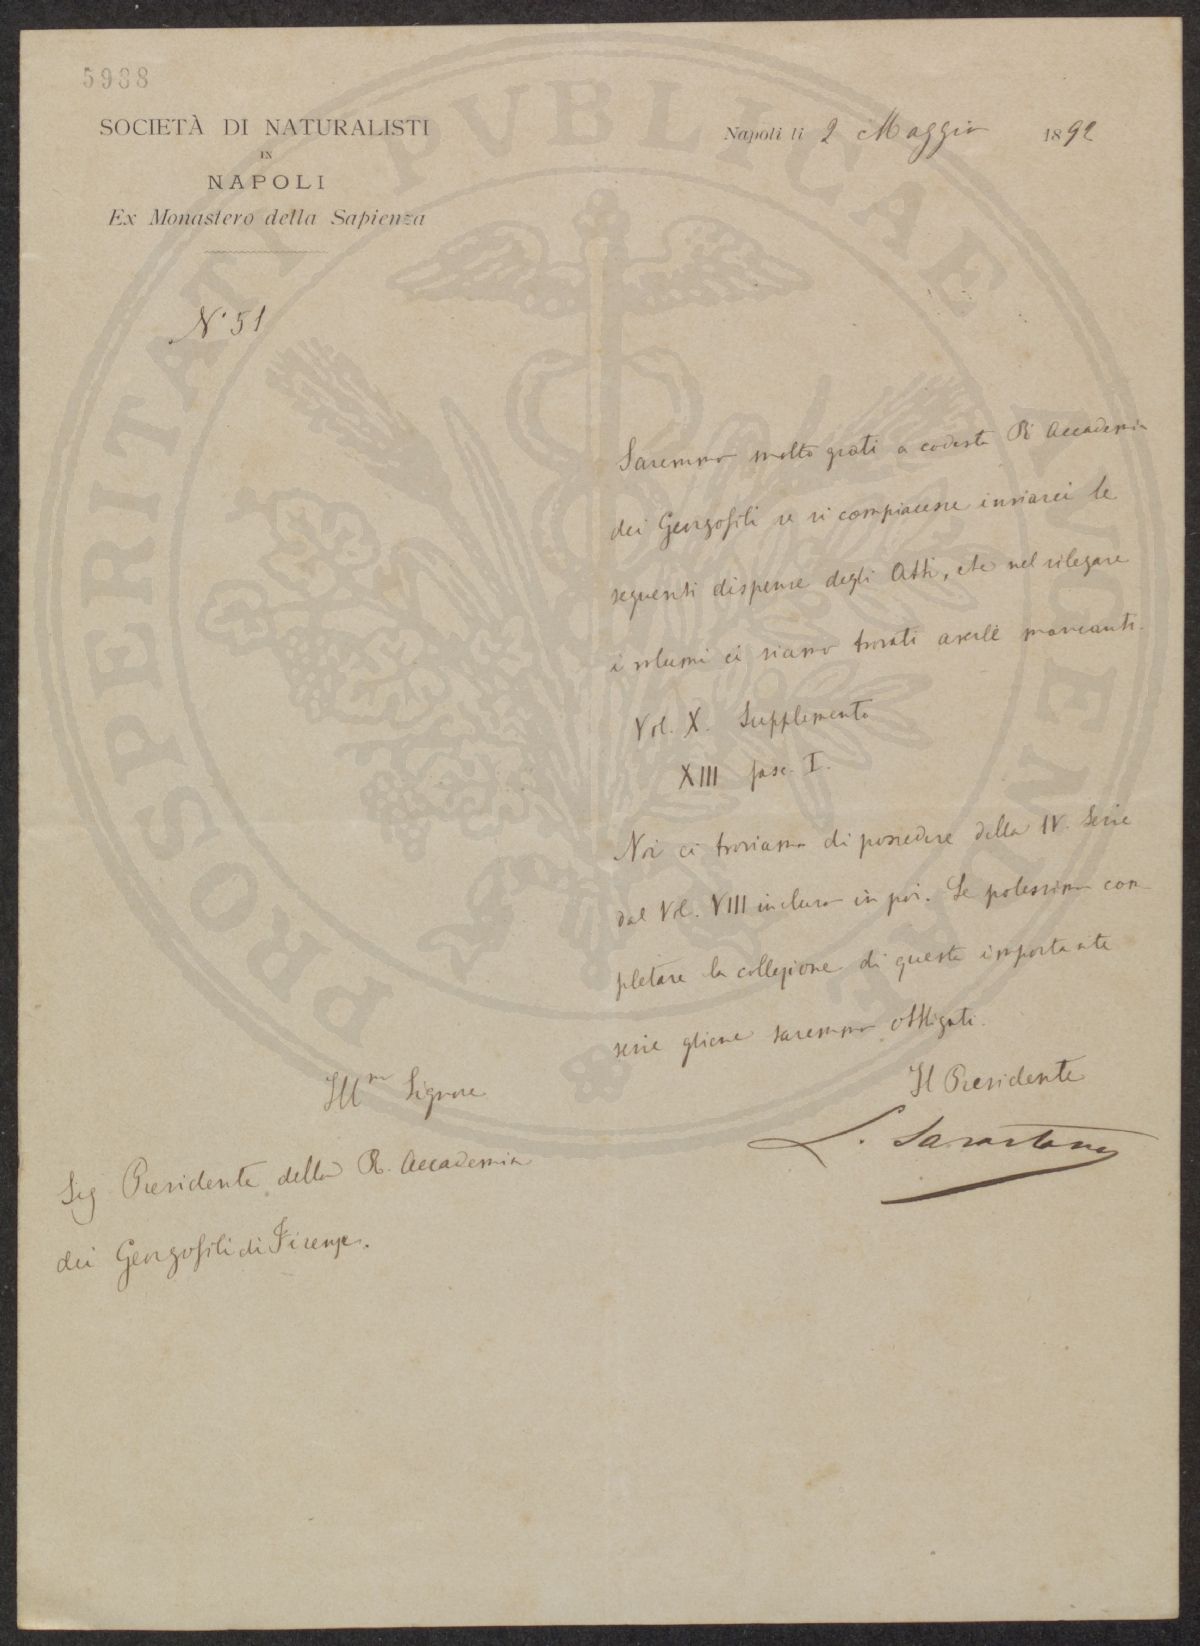 5988
SOCIETÀ DI NATURALISTI
IN
NAPOLI
Ex Monastero della Sapienza
Napoli li 2 Maggio 1892
N.° 51
Saremmo molto grati a codesta R. Accademia
dei Georgofili se si compiacesse inviarci le
seguenti dispense degli Atti, che nel rilegare
i volumi ci siamo trovati averle mancanti.
Vol. X. Supplemento
XIII fasc. I.
Noi ci troviamo di possedere della IV. Serie
dal Vol. VIII incluso in poi. Se potessimo com-
pletare la collezione di questa importante
serie gliene saremmo obbligati.
Il Presidente
L. Savastano
Ill.mo Signore
Sig Presidente della R. Accademia
dei Georgofili di Firenze.
PROSPERITATI PVBLICAE AVGENDAE